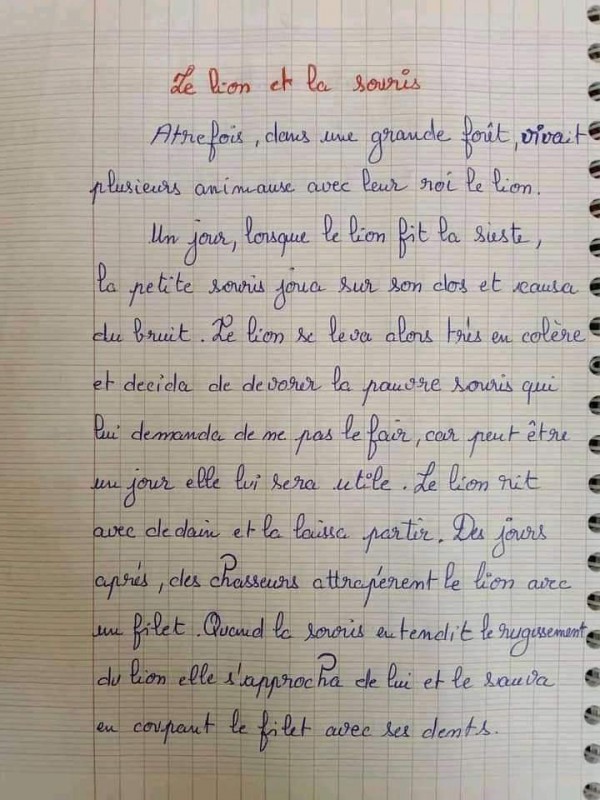 Le lion et la souris
Atrefois, dans une grande forêt, vivait
plusieurs animause avec leur roi le lion.
Un jour, lorsque le lion fit la sieste,
la petite souris joua sur son dos et causa
du bruit. Le lion se leva alors trés en colère
et decida de devorer la pauvre souris qui
lui demanda de ne pas le fair, car peut être
un jour elle lui sera utile. Le lion rit
avec dedain et la laissa partir. Des jours
aprés, des chasseurs attrapérent le lion avec
un filet. Quand la souris entendit le rugissement
du lion elle s'approcha de lui et le sauva
en coupant le filet avec ses dents.